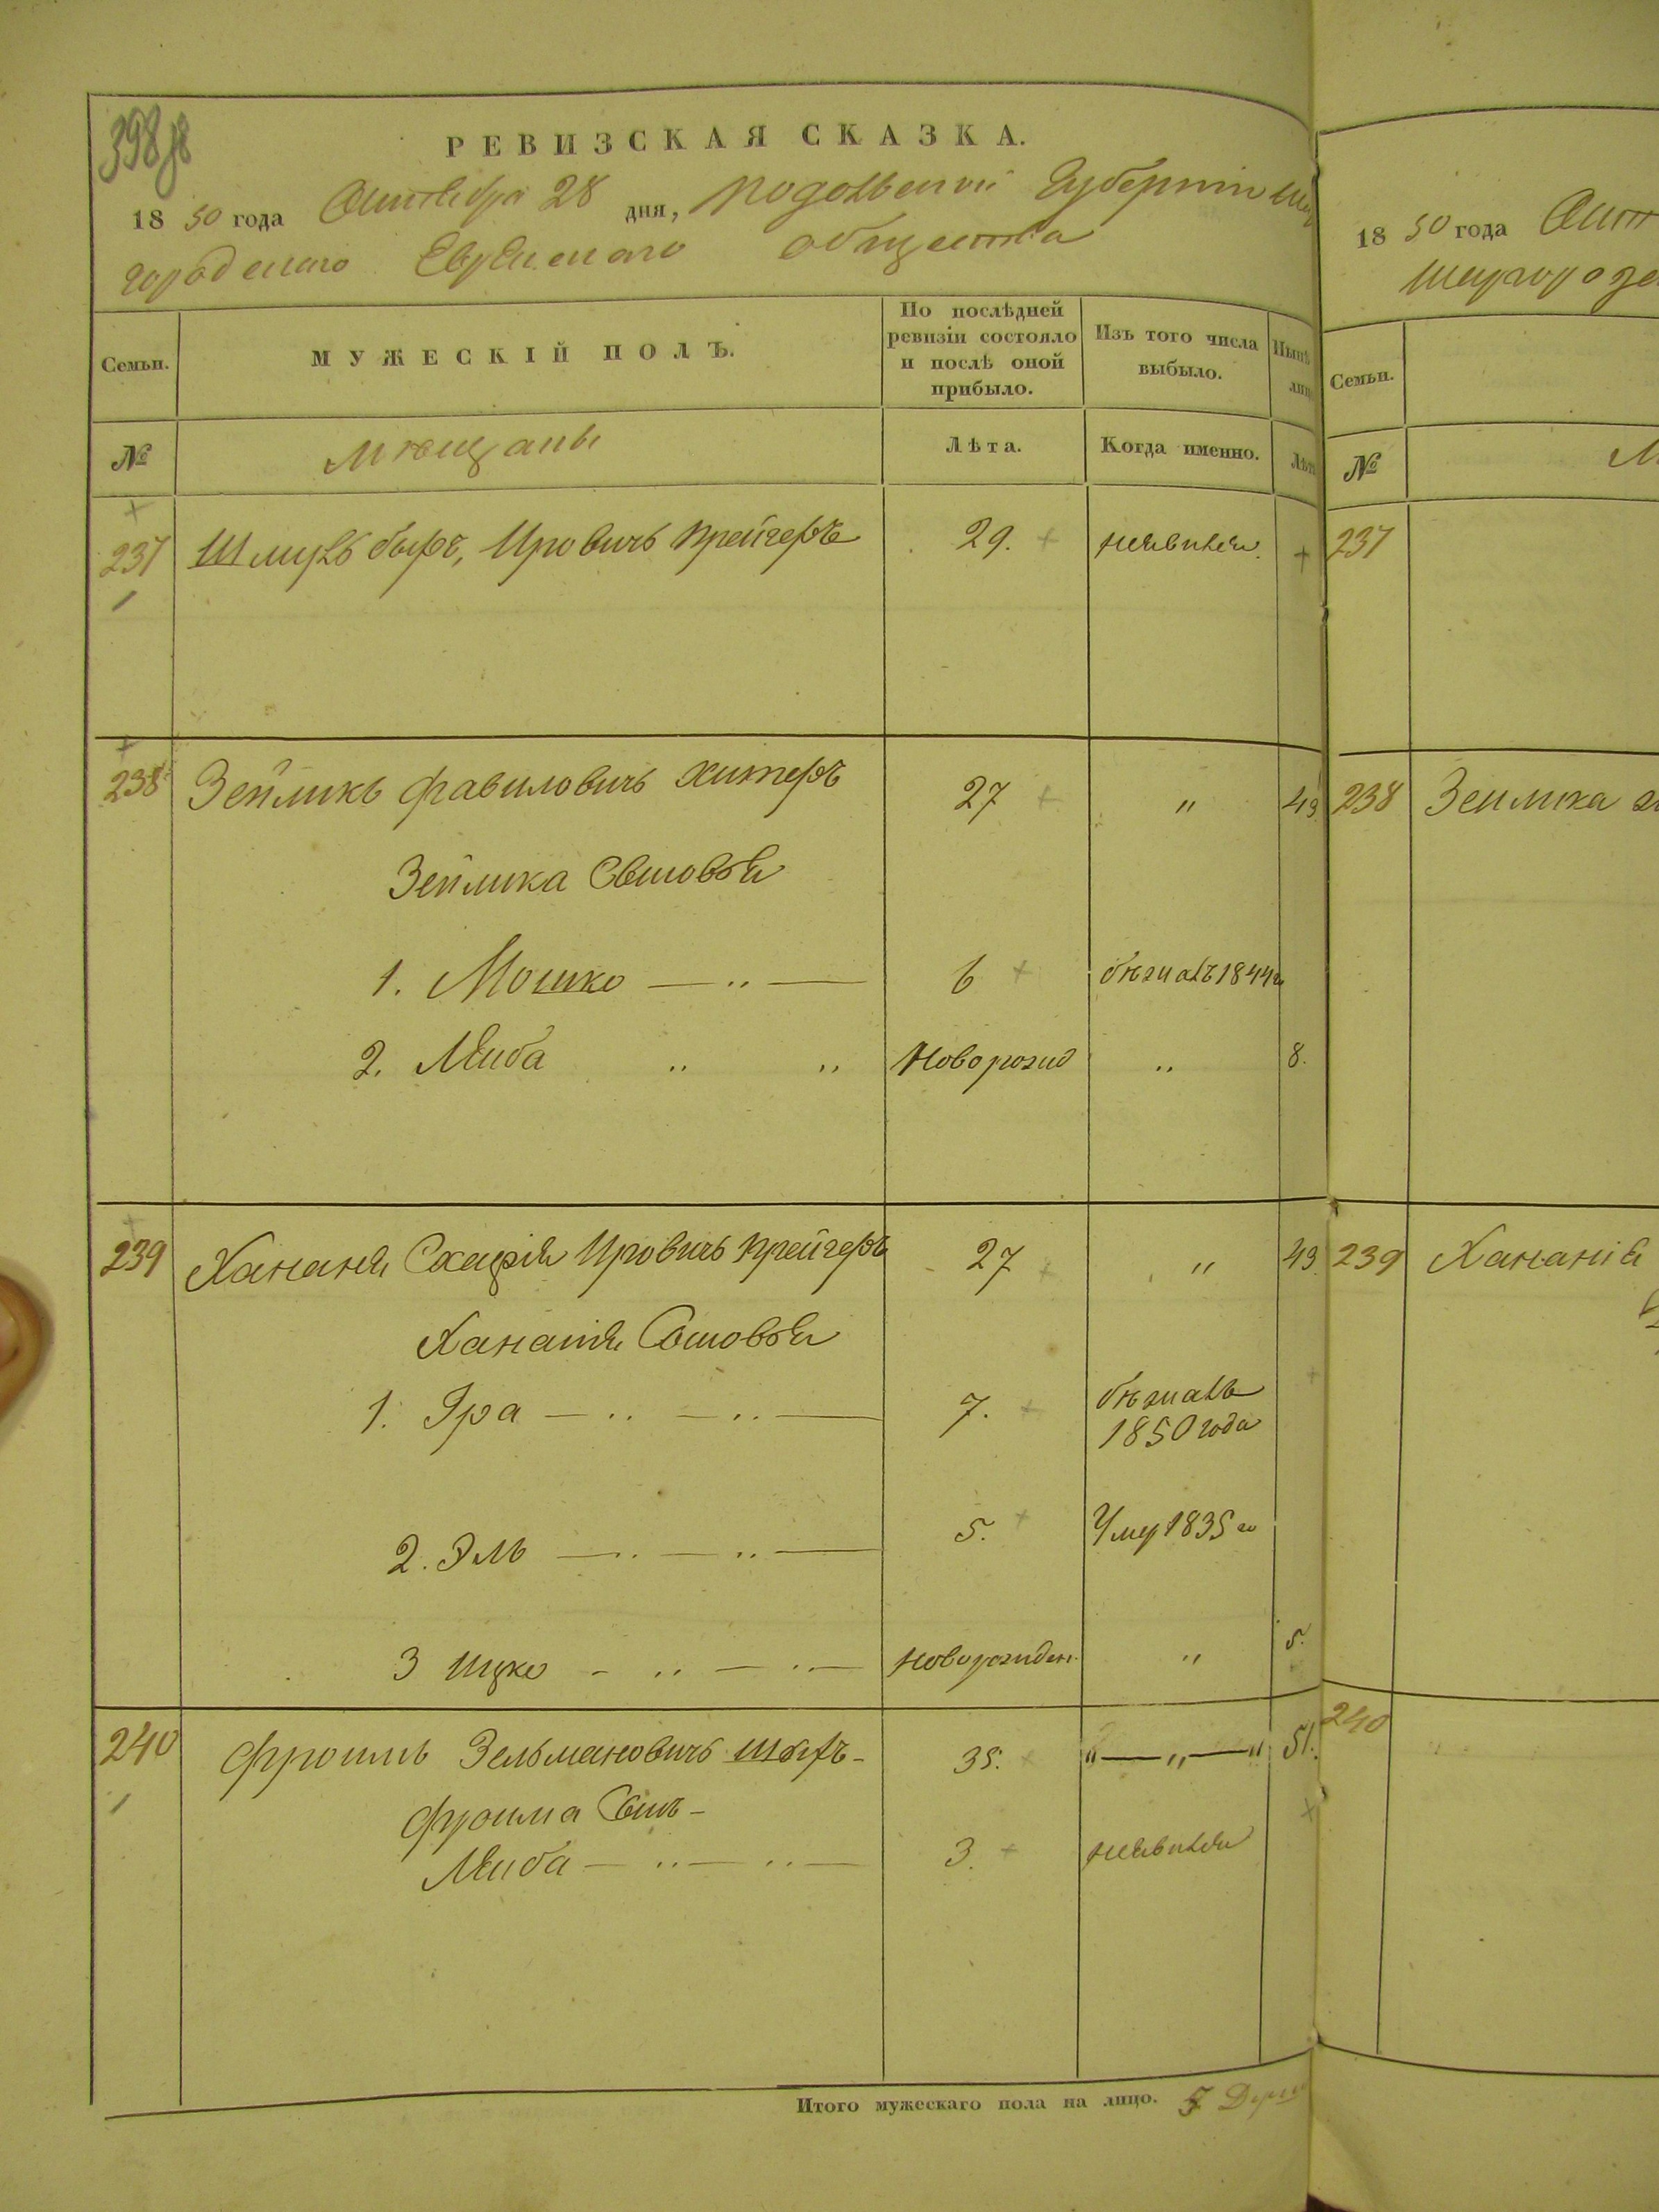 398
РЕВИЗСКАЯ СКАЗКА.
18 50 года Октября 28 дня, Подольской Губернии
городского Еврейского общества
Семьи.
МУЖЕСКІЙ ПОЛЪ.
По послѣдней ревизіи состояло и послѣ оной прибыло.
Изъ того числа выбыло.
Нынѣ
№
Мѣщаны
Лѣта.
Когда именно.
Лѣт
237 Шмуль Беръ, Ировичъ Крейчеръ 29. неявился.
238 Зейликъ Фавиловичъ Хитеръ 27 " 49
Зейлика Сыновья
1. Мошко — .. — 6 бѣжалъ 1844 г
2. Лейба .. .. Новорожд .. 8.
239 Ханания Ировичъ Крейчеръ 27 " 49
Ханания Сыновья
1. Іра — .. — .. — 7. бѣжалъ
1850 года
2. Эль — .. — .. — 5. Умер 1835 го
3 Ицко - .. — .. — Новорожден. .. 5.
240 Фроимъ Зельмановичъ 35. "—„—" 51.
Фроима Сынъ -
Лейба — .. — .. — 3. неявился
Итого мужескаго пола на лицо. 5
18 50 года Окт
Шаргородс
Семьи.
№
М
237
238 Зейлика
239 Ханания
240